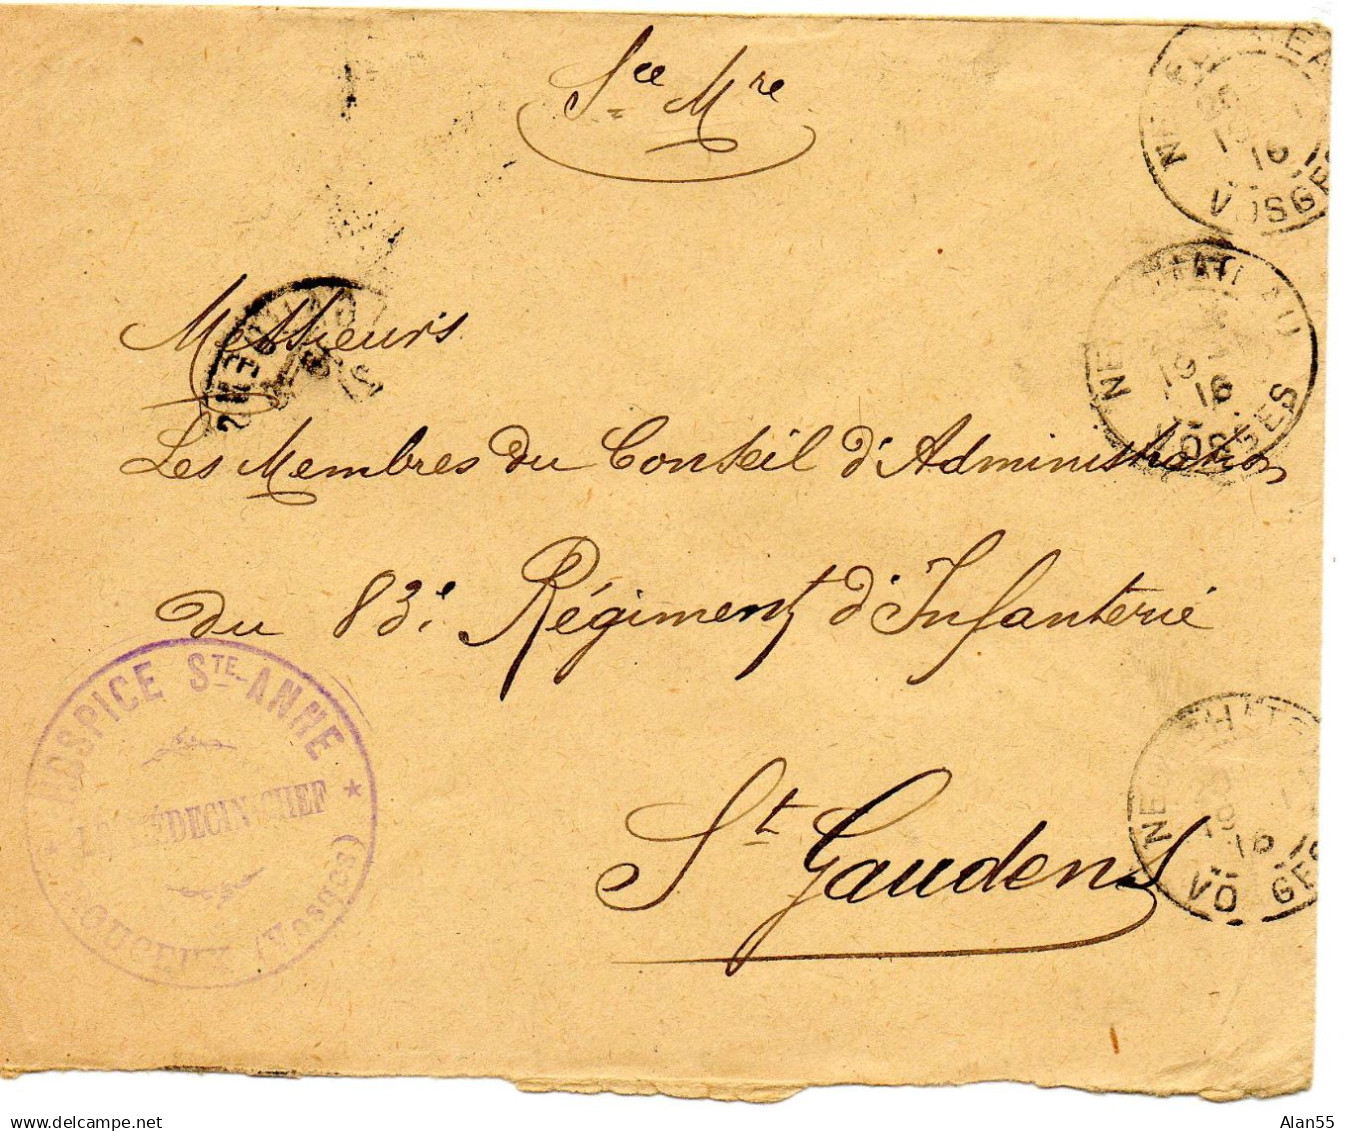 Sce Mre
Messieurs
Les Membres du Conseil d'Administration
du 83e Régiment d'Infanterie
St Gaudens
NEUFCHATEAU
16
VOSGES
NEUFCHATEAU
19
16
VOSGES
NEUFCHATEAU
19
16
VOSGES
HOSPICE STE-ANNE
LE MÉDECIN CHEF
ROUCEUX (Vosges)
Alan55